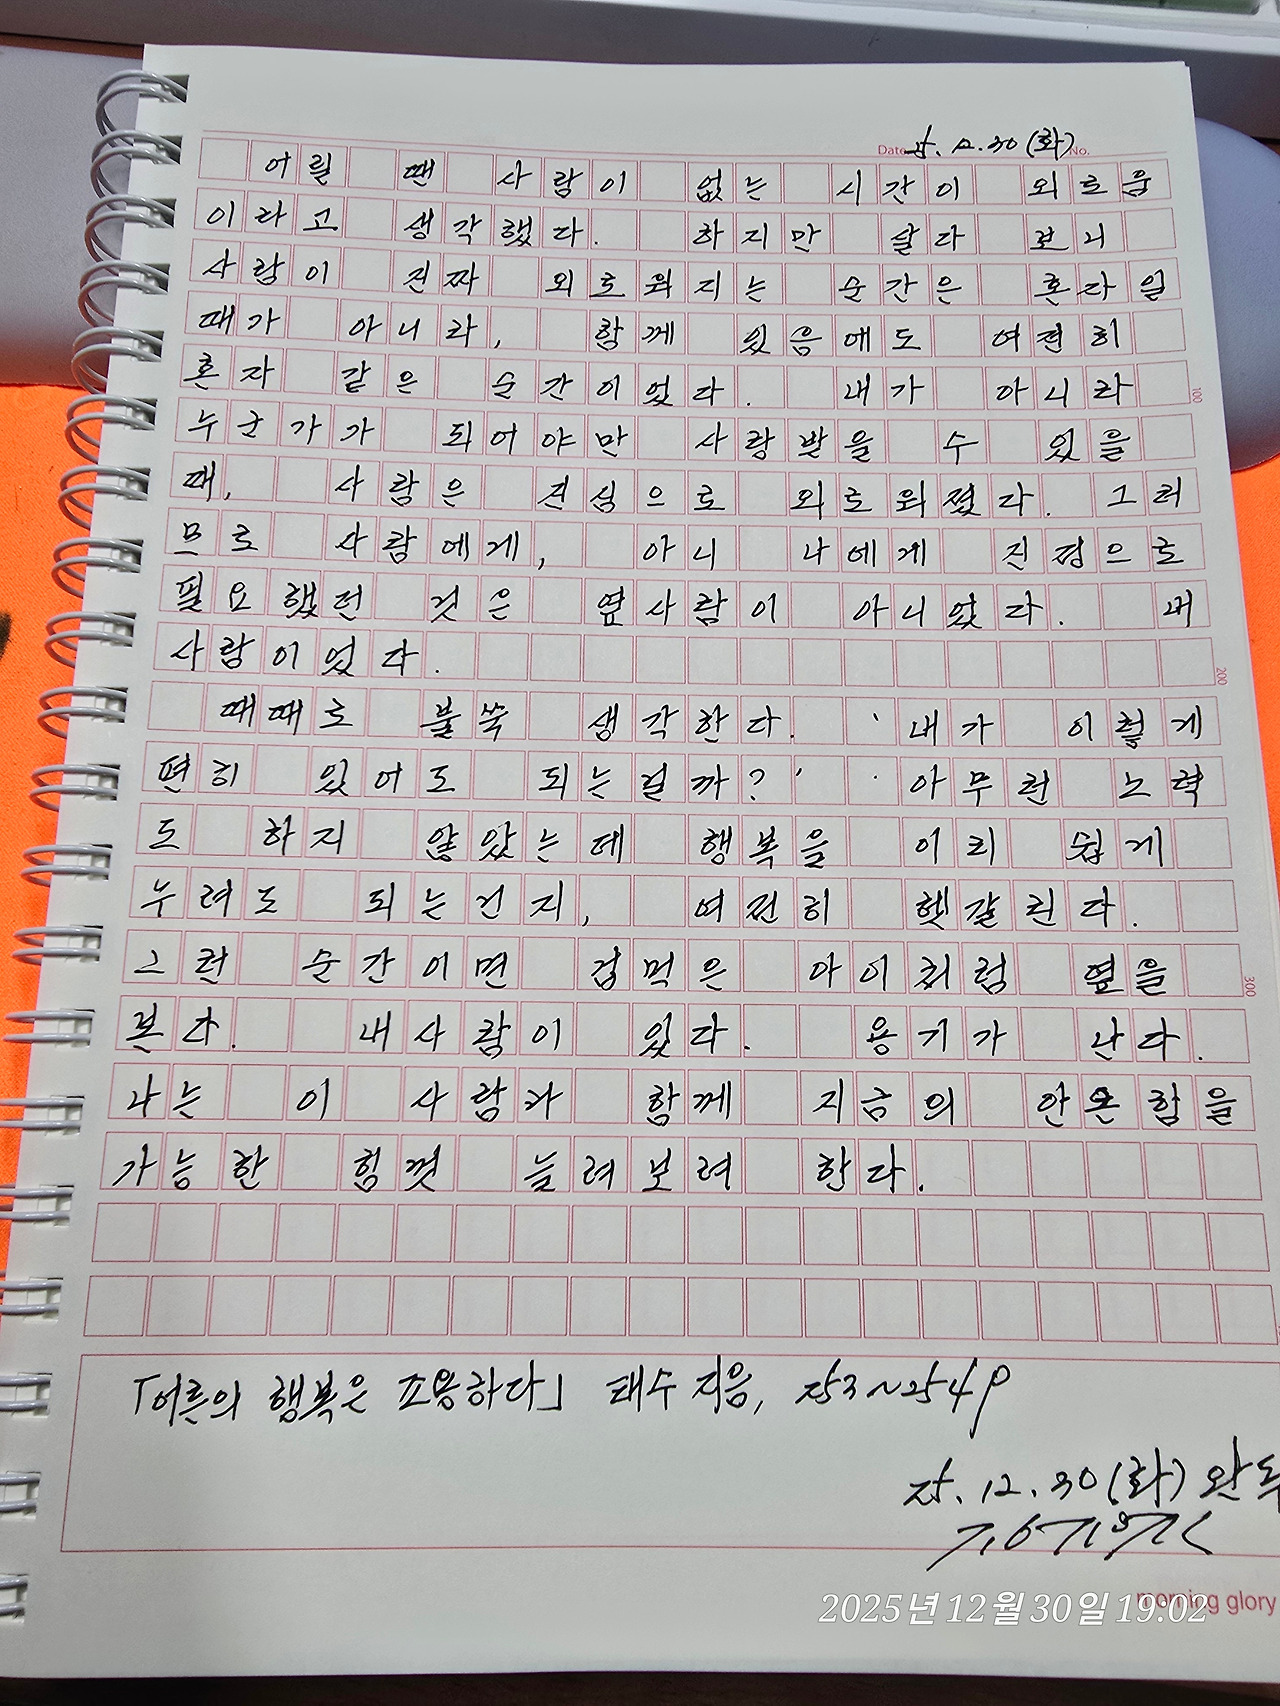 Date 25. 12. 30 (화) No.
어릴 땐 사람이 없는 시간이 외로움
이라고 생각했다. 하지만 살다 보니
사람이 진짜 외로워지는 순간은 혼자일
때가 아니라, 함께 있음에도 여전히
혼자 같은 순간이었다. 내가 아니라
100
누군가가 되어야만 사랑받을 수 있을
때, 사람은 진심으로 외로워졌다. 그러
므로 사람에게, 아니 나에게 진정으로
필요했던 것은 옆사람이 아니었다. 내
사람이었다.
200
때때로 불쑥 생각한다. '내가 이렇게
편히 있어도 되는걸까?' 아무런 노력
도 하지 않았는데 행복을 이리 쉽게
누려도 되는건지, 여전히 헷갈린다.
그런 순간이면 겁먹은 아이처럼 옆을
300
본다. 내사람이 있다. 용기가 난다.
나는 이 사람과 함께 지금의 안온함을
가능한 힘껏 늘려보려 한다.
「어른의 행복은 조용하다」 태수 지음, 253~254p
25. 12. 30 (화) 완독
morning glory
2025년 12월 30일 19:02